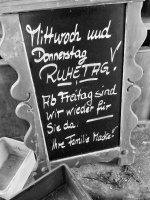 Mittwoch und
Donnerstag
RUHETAG!
Ab Freitag sind
wir wieder für
Sie da.
Ihre Familie